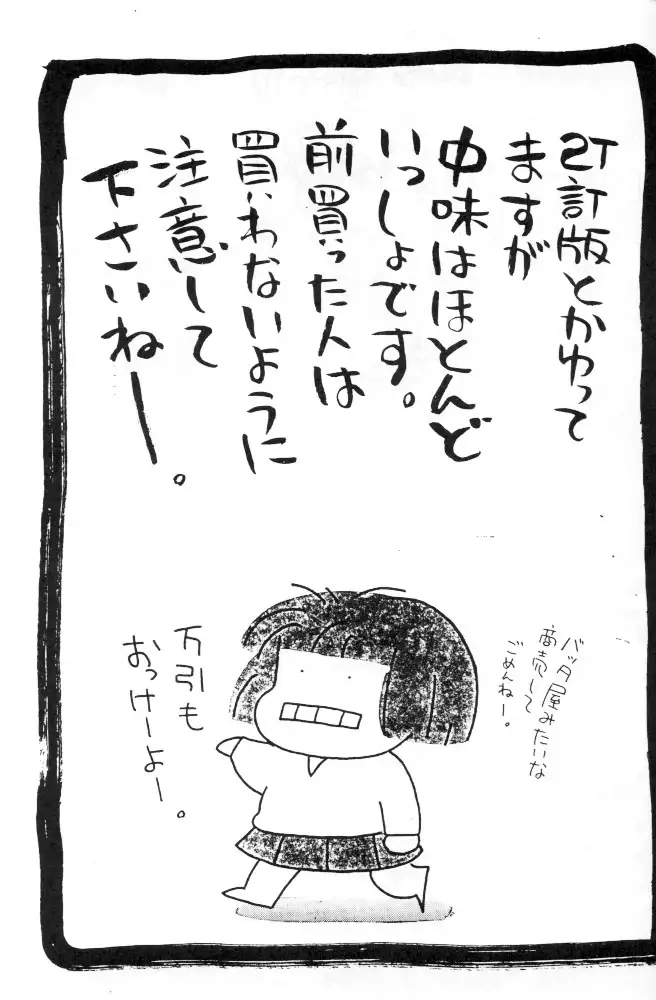 改訂版とかゆって
ますが
中味はほとんど
いっしょです。
前買った人は
買わないように
注意して
下さいねー。
バッタ屋みたいな
商売して
ごめんねー。
万引も
おっけーよー。